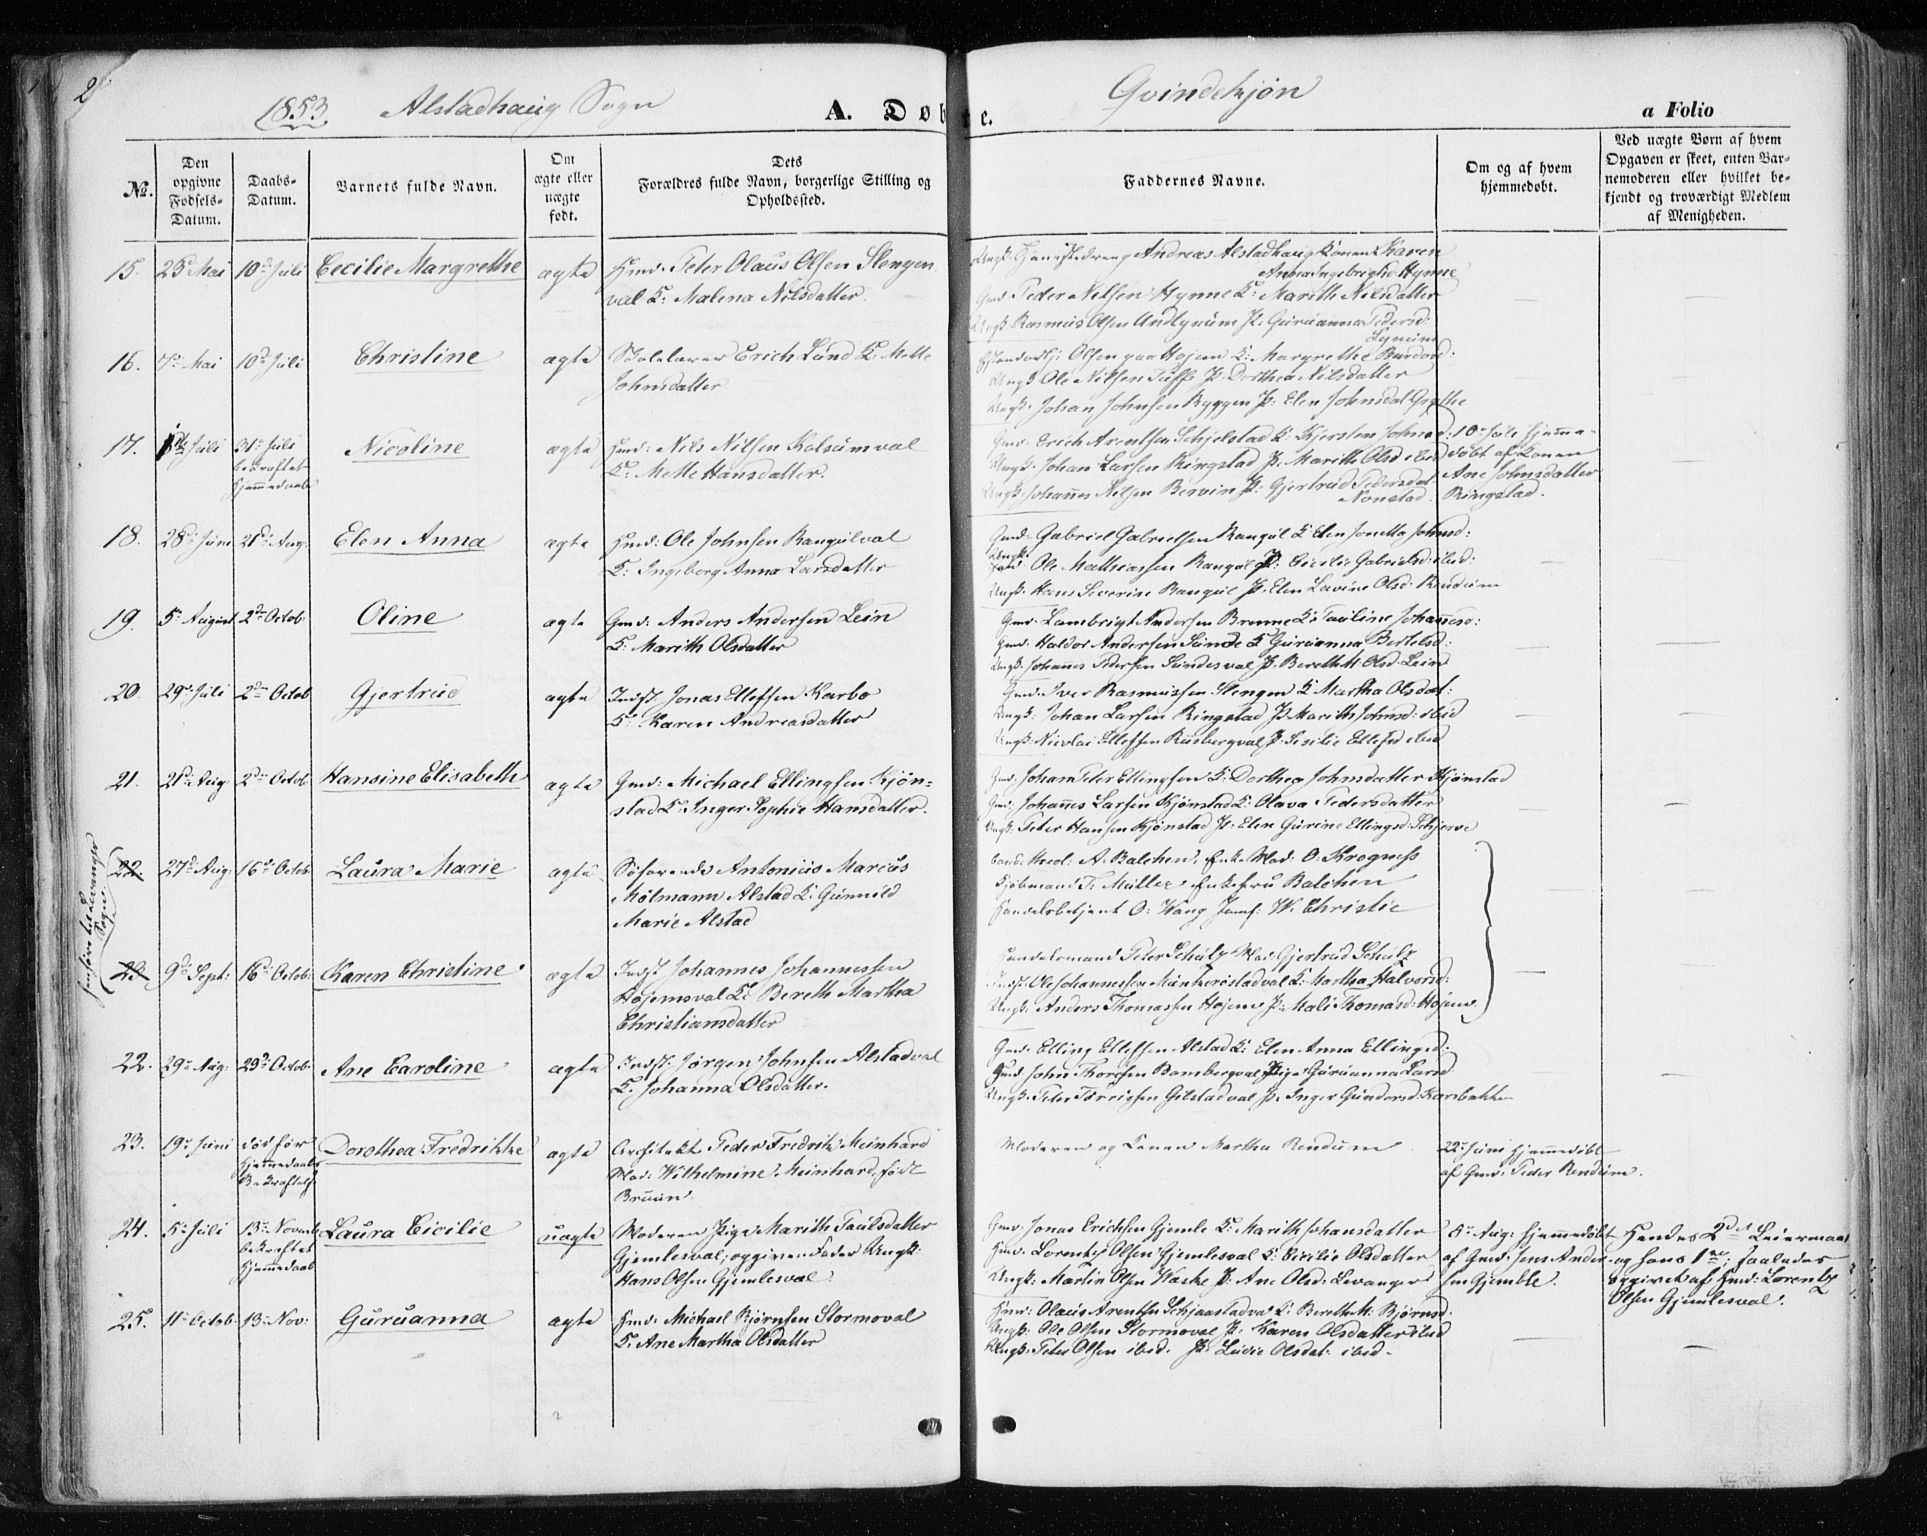 2
1853. Alstadhaug Sogn
A. Døbte.
Qvindekjøn
a Folio
No.
Den opgivne Fødsels-Datum.
Daabs-Datum.
Barnets fulde Navn.
Om ægte eller uægte født.
Dets Forældres fulde Navn, borgerlige Stilling og Opholdssted.
Faddernes Navne.
Om og af hvem hjemmedøbt.
Ved uægte Børn af hvem Opgaven er skeet, enten Barnemoderen eller hvilket bekjendt og troværdigt Medlem af Menigheden.
15. 25de Mai 10de Juli Cecilie Margrethe ægte Huusmd: Peter Olaus Olsen Slengen
val K: Malena Nilsdatter.
Andreas Alstadhaug Konen Karen
Anna Ingebrigtsd Hynne
Gmd Peder Nilsen Hynne K: Marith Nilsdatter
Ungk: Rasmus Olsen P: Guruanna Pedersd:
Lynum
16. 7de Mai 10de Juli Christine ægte Skolelærer Erich Lund K: Mette
Johnsdatter
Olsen paa Hojem K: Margrethe
Ungk: Ole Nilsen P: Dorthea Nilsdatter
Ungk: Johan Johnsen Ryggen P: Elen Johnsdat
17. Juli 31te Juli Nicoline ægte Hmd: Nils Nilsen Kolsumval
bekræftet Hjemmedaab
K: Mette Hansdatter.
Gmd: Erich Arentsen Schjelstad K: Kjersten
Ungk: Johan Larsen Ringstad P: Marith Olsd ibid
Ungk: Johannes Nilsen P: Gjertrud Pedersdat
Nonstad.
10de Juli hjemme-
døbt af Konen
Ane Johnsdatter
Ringstad.
18. 28de Juni 21de Aug: Elen Anna ægte Hmd: Ole Johnsen Rangulval
K: Ingeborg Anna Larsdatter
Gmd: Gabriel Gabrielsen Rangul K: Elen Johnsd:
Ungk: Ole Mathiassen Rangul P: Cicilie Gabrielsd: ibid:
Ungk: Hans Severine Rangul P: Elen Lavine Olsd: Rendum
19. 5te August 2den Octob: Oline ægte Gmd: Anders Andersen Lein
K: Marith Olsdatter
Gmd: Lambrigt Andersen Brenne K: Pauline Johannesd:
Gmd: Haldor Andersen Sunde K Guruanna Bertelsd:
Ungk: Johannes Pedersen Sundesval P: Berethe Olsd: Lein
20. 29de Juli 2den Octob Gjertrud ægte Indst Jonas Ellefsen Karbo
K: Karen Andreasdatter
Gmd: Iver Rasmussen Slengen K: Martha Olsdat:
Ungk: Johan Larsen Ringstad P: Marith Johnsd: ibid
Ungk: Nicolai Ellefsen P: Ellefsd ibid
21. 21de Aug: 2den Octob: Hansine Elisabeth ægte Gmd: Michael Ellingsen Kjøn-
stad K: Inger Sophie Hansdatter.
Gmd: Johan Peter Ellingsen K: Dorthea Johnsdatter Kjønstad
Gmd: Johannes Larsen Kjønstad K: Olava Pedersdatter
Ungk: Peter Hansen Kjønstad P: Elen Gurine Ellingsd: Schjerve
henføres til Levanger Sogn
22. 27de Aug: 16de Octob: Laura Marie ægte Søfarende Antonius Marcus
Holmann Alstad K: Gunnild
Marie Alstad
A. Balchen, Enke Mad: O: Krogness
Kjøbmand F. Müller Enkefru Balchen
Handelsbetjent O: Wang Jomf: W: Christie
23. 9de Sept: 16de Octob: Karen Christine ægte Indst Johannes Johannessen
Hojemsval K: Bereth Martha
Christiansdatter
Handelsmand Peter Schulz Mad: Gjertrud Schulz
Indst: Ole Johannessen K: Martha Halvorsd:
Ungk: Anders Thomassen Hojem P: Mali Thomasd: Hojem
22. 29de Aug: 23de Octob: Ane Caroline ægte Indst: Jørgen Johnsen Alstadval
K: Johanna Olsdatter.
Gmd: Elling Ellefsen Alstad K: Elen Anna Ellingsd:
Hmd John Thoresen Bambergval Pige Guruanna Larsd
Ungk: Peter Gilstadval P: Inger Gundersd: Karsbakken
23. 19de Juni død før Hjemmedaabs Bekræftelse Dorothea Fredrikke ægte Architekt Peder Fredrik Meinhard
Mad: Wilhelmine Meinhard, født
Bruun.
Moderen og Konen Martha Rendum
22de Juni hjemmedøbt
af Gmd: Peder Rendum.
24. 5te Juli 13de Novemb: bekræftet Hjemmedaab Laura Cicilie uægte Moderen Pige Marith Paulsdatter
Gjemlesval; opgiven Fader Ungk:
Hans Olsen Gjemlesval
Gmd: Jonas Erichsen Gjemle K: Marith Johansdatter
Hmd: Lorentz Olsen Gjemlesval K: Cicilie Olsdatter
Ungk: Martin Olsen P: Ane Olsd: Levanger
8de Aug: hjemmedøbt
af Gmd: Jens Ander-
sen Gjemble.
Hendes 2det Leiermaal
og hans 1ste; saaledes
opgivet af Hmd: Lorentz
Olsen Gjemlesval.
25. 11te Octob: 13de Nov: Guruanna ægte Hmd: Michael Bjørnsen Stormoval
K: Ane Martha Olsdatter
Hmd: Olaus Arentsen K: Berethe M: Bjørnsd:
Ungk: Ole Olsen Stormoval P: Karen Olsdatter ibid
Ungk: Peter Olsen ibid. P: Lucie Olsdat: ibid.